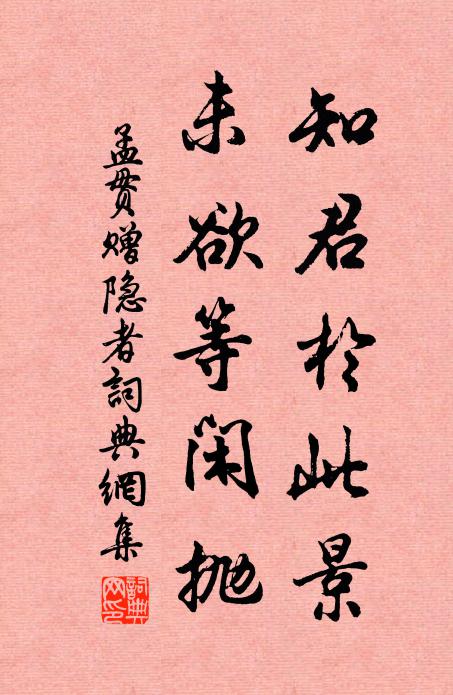 知君於此景
未欲等闲抛
孟贯赠隐者詞典網集
詞典網印